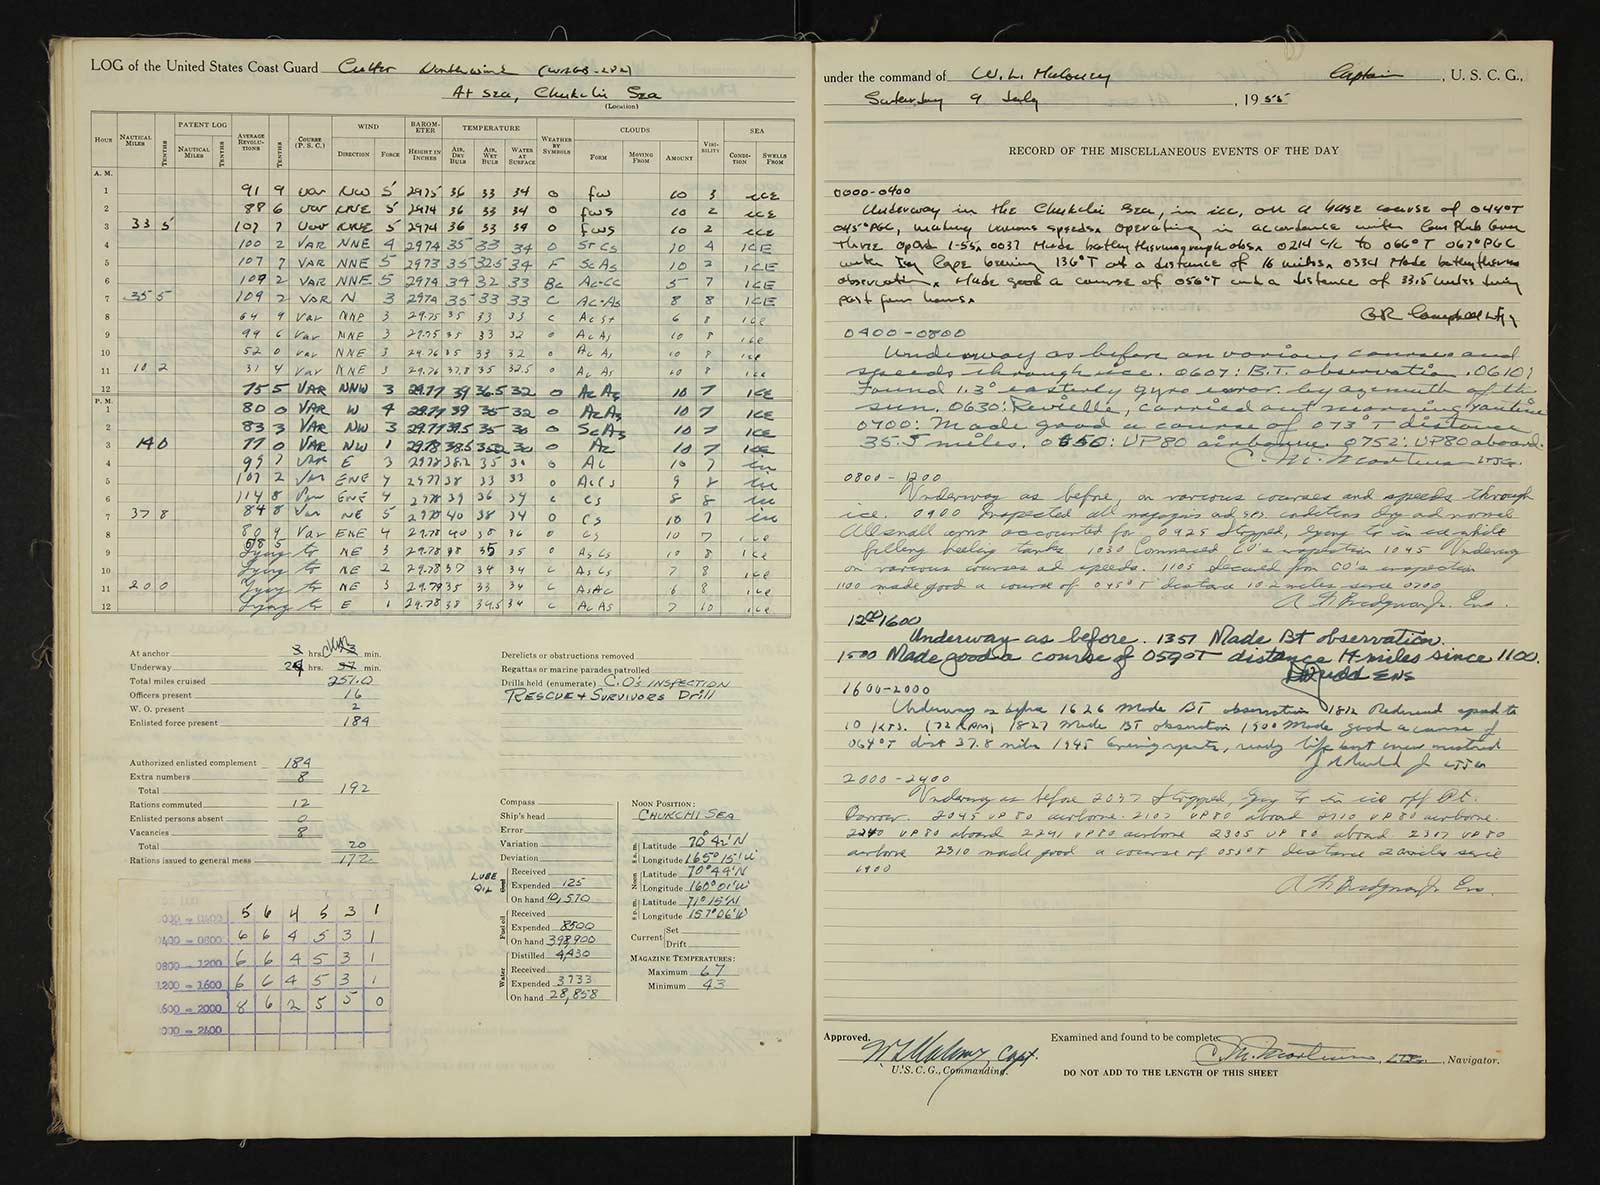 LOG of the United States Coast Guard Cutter Northwind (WAGB-282)
At sea, Chukchi Sea
(Location)
HOUR NAUTICAL MILES TENTHS PATENT LOG NAUTICAL MILES TENTHS AVERAGE REVOLUTIONS TENTHS COURSE (P. S. C.) WIND DIRECTION FORCE BAROMETER HEIGHT IN INCHES TEMPERATURE AIR, DRY BULB AIR, WET BULB WATER AT SURFACE WEATHER BY SYMBOLS CLOUDS FORM MOVING FROM AMOUNT VISIBILITY SEA CONDITION SWELLS FROM
A. M.
1 91 9 var NW 5 2975 36 33 34 o fw 10 3 ice
2 88 6 var NNE 5 2974 36 33 34 o fws 10 2 ice
3 33 5 107 7 var NNE 5 2974 36 33 34 o fws 10 2 ice
4 100 2 VAR NNE 4 2974 35 33 34 o St Cs 10 4 ICE
5 107 7 VAR NNE 5 2973 35 32.5 34 F ScAs 10 2 ICE
6 109 2 VAR NNE 5 2974 34 32 33 Bc Ac-Cc 5 7 ICE
7 35 5 109 2 VAR N 3 2974 35 33 33 C Ac-As 8 8 ICE
8 64 9 Var NNE 3 29.75 35 33 33 c AcSt 6 8 ice
9 99 6 Var NNE 3 29.75 35 33 32 o AcAs 10 8 ice
10 52 0 var NNE 3 29.76 35 33 32 o AcAs 10 8 ice
11 10 2 31 4 Var NNE 3 29.76 37.8 35 32.5 o AcAs 10 8 ice
12 75 5 VAR NNW 3 29.77 39 36.5 32 o AcAs 10 7 ICE
P. M.
1 80 0 VAR W 4 29.77 39 35 32 o AcAs 10 7 ICE
2 83 3 VAR NW 3 29.77 39.5 35 30 o ScAs 10 7 ICE
3 14 0 77 0 VAR NW 1 29.78 38.5 35 30 o Ac 10 7 ICE
4 99 7 VAR E 3 2978 38.2 35 30 o Ac 10 7
5 107 2 Var ENE 4 2977 38 33 33 o AcCs 9 8
6 114 8 ENE 4 2978 39 36 34 c Cs 8 8
7 37 8 84 8 Var NE 5 2978 40 38 34 o Cs 10 7
8 80 9 Var ENE 4 29.78 40 38 36 o Cs 10 7 ice
9 Lying to NE 3 29.78 38 35 35 o AsCs 10 8 ice
10 Lying to NE 2 29.78 37 34 34 C AsCs 7 8 ice
11 20 0 Lying to NE 3 29.79 35 33 34 C AsAc 6 8 ice
12 Lying to E 1 29.78 38 34.5 34 c AcAs 7 10 ice
At anchor hrs. min.
Underway 24 hrs. min.
Total miles cruised 251.0
Officers present 16
W. O. present 2
Enlisted force present 184
Authorized enlisted complement 184
Extra numbers 8
Total 192
Rations commuted 12
Enlisted persons absent 0
Vacancies 8
Total 20
Rations issued to general mess 172
Derelicts or obstructions removed
Regattas or marine parades patrolled
Drills held (enumerate) C.O's INSPECTION
RESCUE & SURVIVORS Drill
Compass
Ship's head
Error
Variation
Deviation
LUBE OIL Received
Expended 125
On hand 10,570
Fuel oil Received
Expended 8500
On hand 398,900
Water Distilled 4,430
Received
Expended 3733
On hand 28,858
NOON POSITION:
CHUKCHI SEA
8 a. m. Latitude 70° 42' N
Longitude 165° 15' W
Noon Latitude 70° 44' N
Longitude 160° 01' W
8 p. m. Latitude 71° 15' N
Longitude 157° 06' W
Current Set
Drift
MAGAZINE TEMPERATURES:
Maximum 67
Minimum 43
0000 - 0400 5 6 4 5 3 1
0400 - 0800 6 6 4 5 3 1
0800 - 1200 6 6 4 5 3 1
1200 - 1600 6 6 4 5 3 1
1600 - 2000 8 6 2 5 5 0
2000 - 2400
under the command of W. L. Maloney Captain, U. S. C. G.,
Saturday 9 July, 1955
RECORD OF THE MISCELLANEOUS EVENTS OF THE DAY
0000-0400
Underway in the Chukchi Sea, in ice, on a base course of 044°T
045°PGC, making various speeds. Operating in accordance with
Three OpOrd 1-55. 0037 Made bathythermograph obs. 0214 C/c to 066°T 067°PGC
with Icy Cape bearing 136°T at a distance of 16 miles. 0334 Made bathythermo
observation. Made good a course of 056°T and a distance of 33.5 miles during
past four hours.
B R Campbell LTJG
0400-0800
Underway as before on various courses and
speeds through ice. 0607: B.T. observation. 0610:
Found 1.3° easterly gyro error by azimuth of the
sun. 0630: Reveille, carried out morning routine
0700: Made good a course of 073°T distance
35.5 miles. 0650: UP80 airborne. 0752: UP80 aboard.
LTJG.
0800 - 1200
Underway as before, on various courses and speeds through
ice. 0900 Inspected all magazines conditions dry and normal
All small arms accounted for 0925 Stopped, lying to in ice while
filling heeling tanks 1030 Commenced CO's inspection 1045 Underway
on various courses and speeds. 1105 Secured from CO's inspection
1100 made good a course of 045°T distance 10.2 miles since 0700
Ens.
1200-1600
Underway as before. 1357 Made BT observation.
1500 Made good a course of 059°T distance 14 miles since 1100.
Judd ENS
1600-2000
Underway as before 1626 Made BT observation 1812 Reduced speed to
10 kts. (72 RPM) 1827 Made BT observation 1900 Made good a course of
064°T dist 37.8 miles 1945 Evening reports, ready life boat crew mustered
LTJG
2000-2400
Underway as before 2037 Stopped, lying to in ice off Pt.
Barrow. 2045 UP 80 airborne. 2107 UP80 aboard 2110 UP 80 airborne.
2240 UP80 aboard 2241 UP80 airborne 2305 UP 80 aboard 2307 UP80
airborne 2310 made good a course of 053°T distance 20 miles since
1900
Ens.
Approved:
W L Maloney Capt.
U. S. C. G., Commanding.
Examined and found to be complete
LTJG., Navigator.
DO NOT ADD TO THE LENGTH OF THIS SHEET